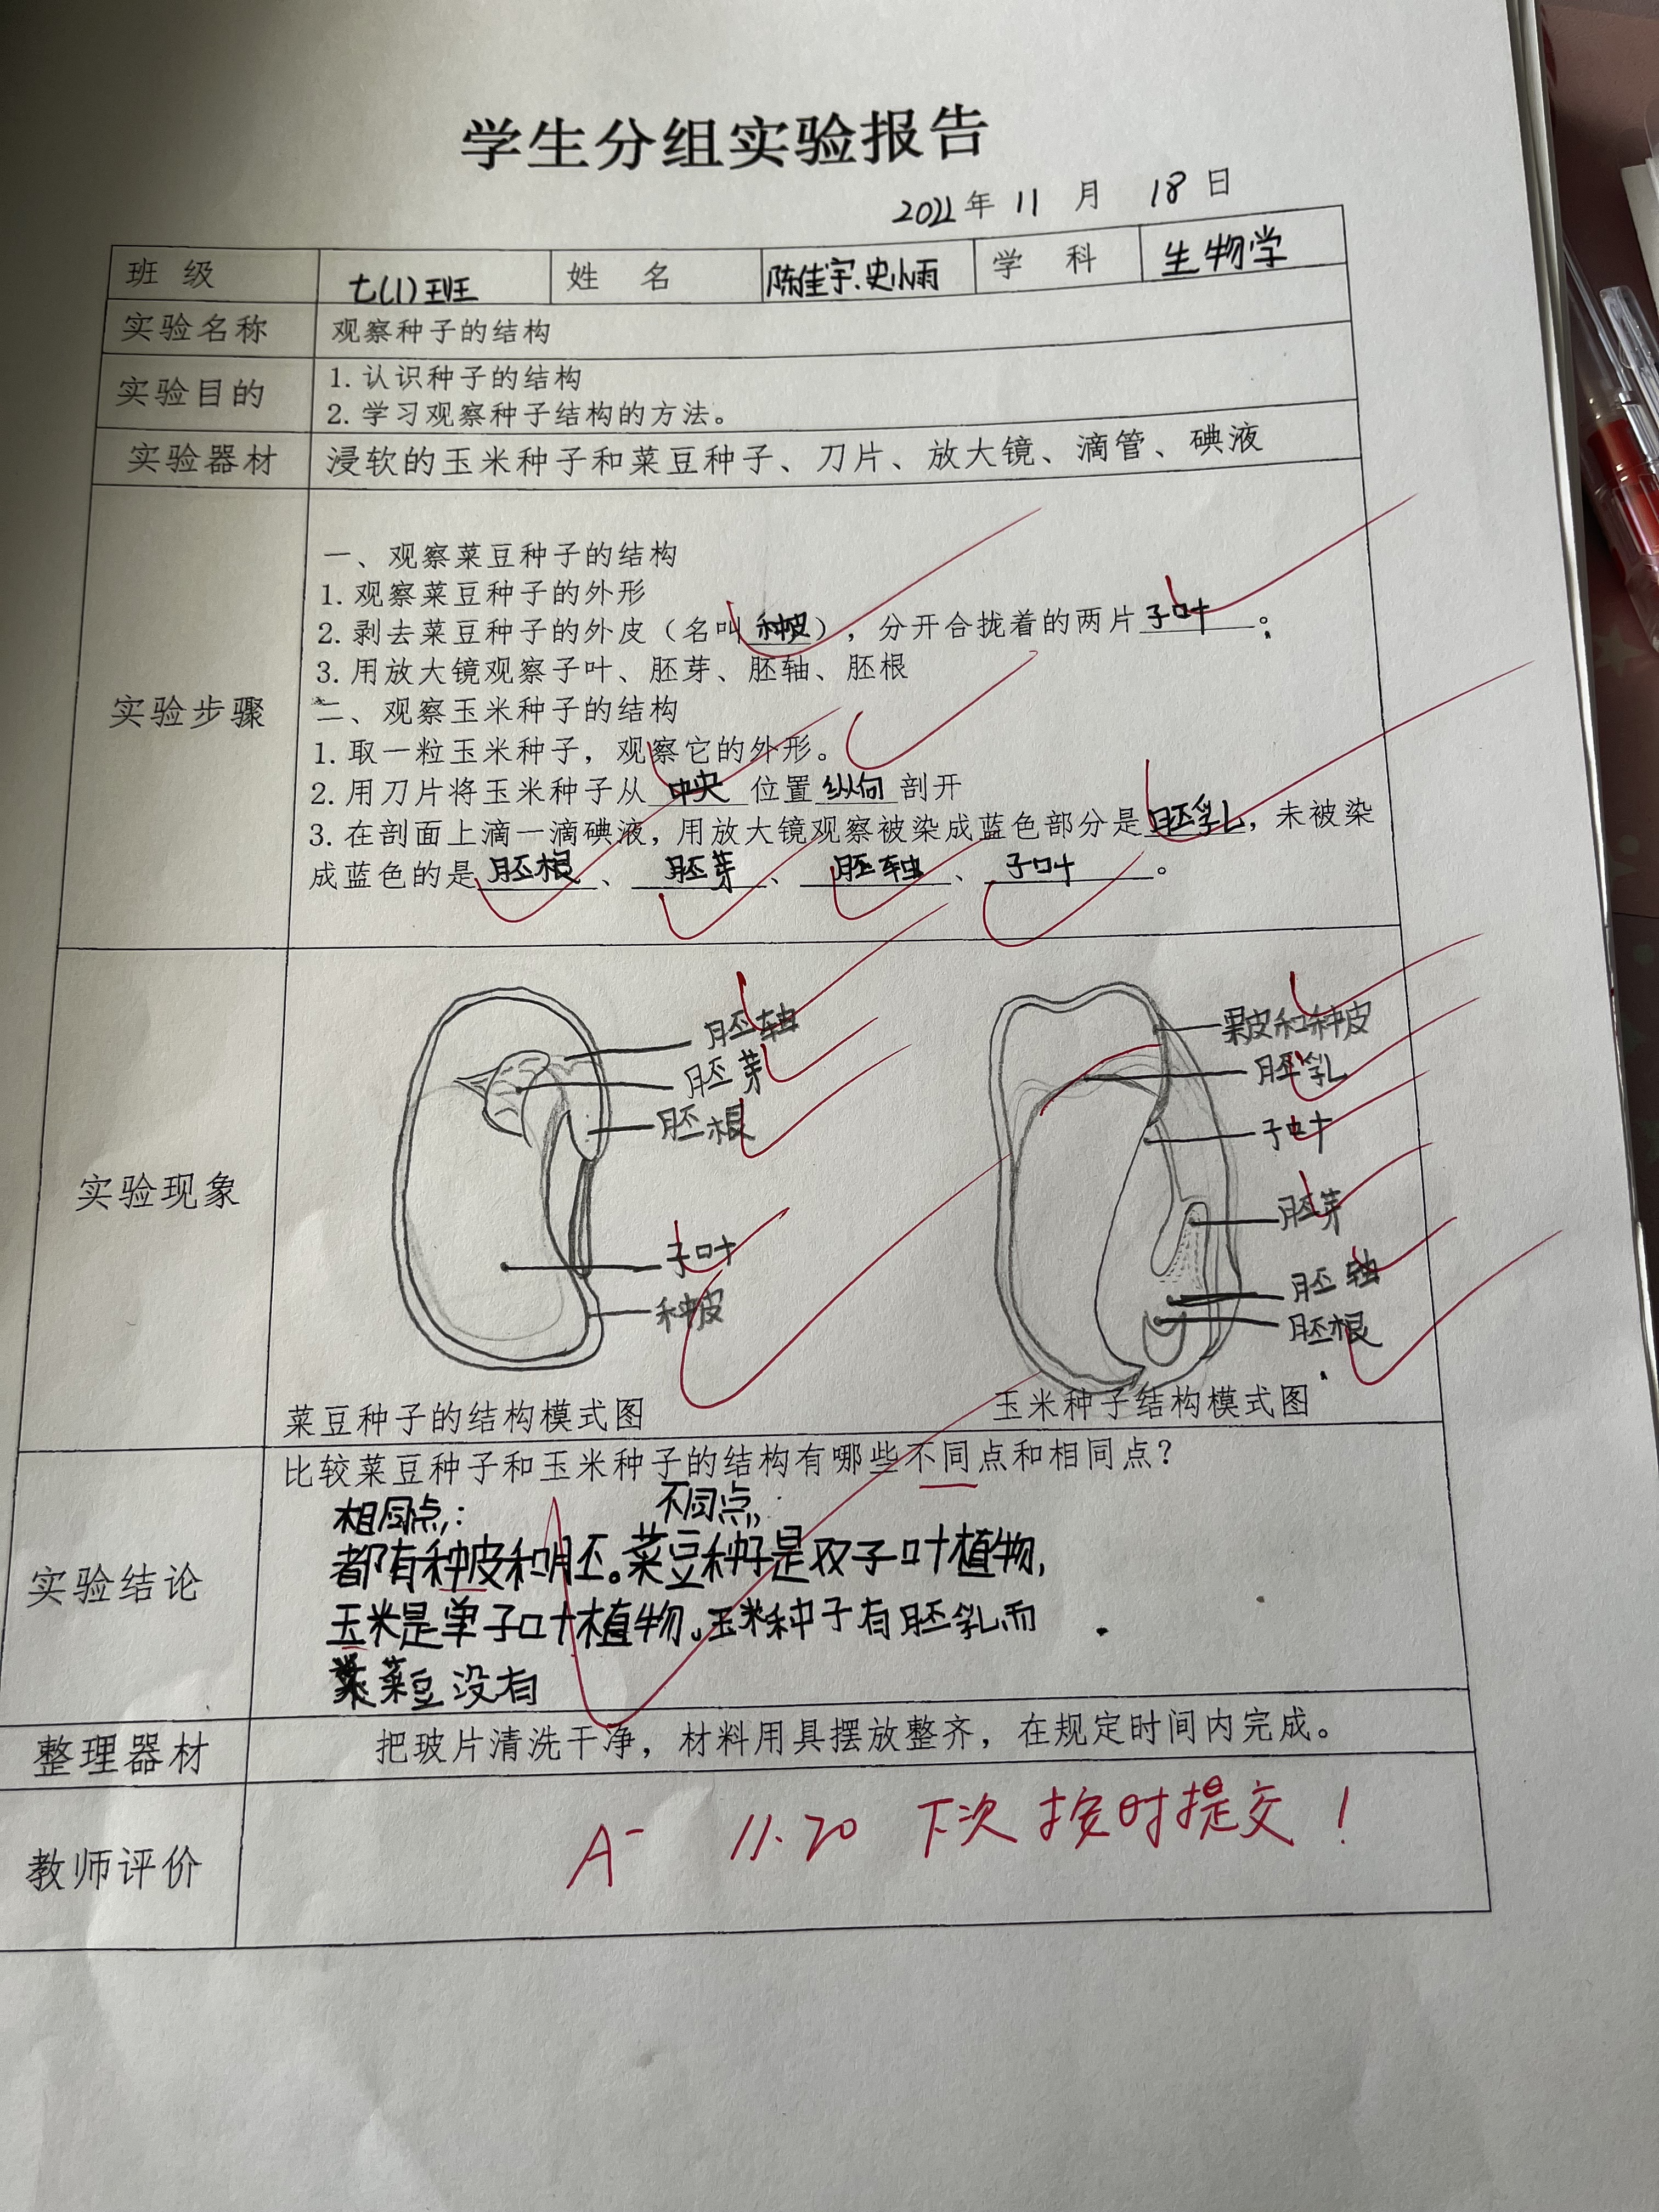 学生分组实验报告
2022年 11 月 18 日
班 级 七(1)班 姓 名 陈佳宇.史小雨 学 科 生物学
实验名称 观察种子的结构
实验目的 1. 认识种子的结构
2. 学习观察种子结构的方法。
实验器材 浸软的玉米种子和菜豆种子、刀片、放大镜、滴管、碘液
实验步骤
一、观察菜豆种子的结构
1. 观察菜豆种子的外形
2. 剥去菜豆种子的外皮（名叫种皮），分开合拢着的两片子叶。
3. 用放大镜观察子叶、胚芽、胚轴、胚根
二、观察玉米种子的结构
1. 取一粒玉米种子，观察它的外形。
2. 用刀片将玉米种子从中央位置纵向剖开
3. 在剖面上滴一滴碘液，用放大镜观察被染成蓝色部分是胚乳，未被染
成蓝色的是胚根、胚芽、胚轴、子叶。
实验现象
胚轴
胚芽
胚根
子叶
种皮
菜豆种子的结构模式图
果皮和种皮
胚乳
子叶
胚芽
胚轴
胚根
玉米种子结构模式图
实验结论
比较菜豆种子和玉米种子的结构有哪些不同点和相同点？
相同点: 不同点:
都有种皮和胚。菜豆种子是双子叶植物,
玉米是单子叶植物。玉米种子有胚乳而
菜豆没有
整理器材 把玻片清洗干净，材料用具摆放整齐，在规定时间内完成。
教师评价 A- 11.20 下次按时提交！